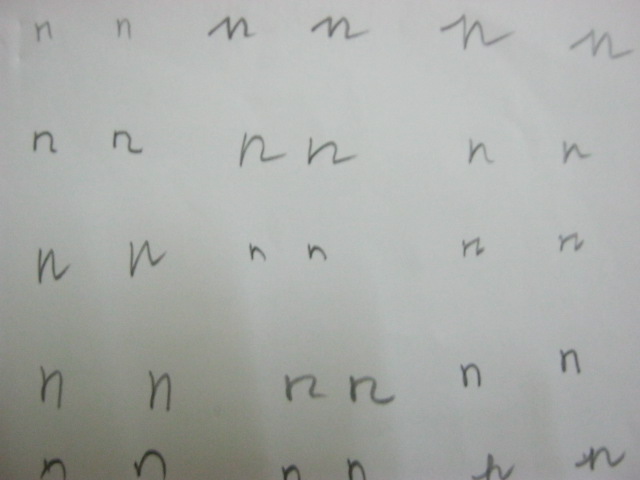 n n n n n n
n n n n n n
n n n n n n
n n n n n n
n n n n n n